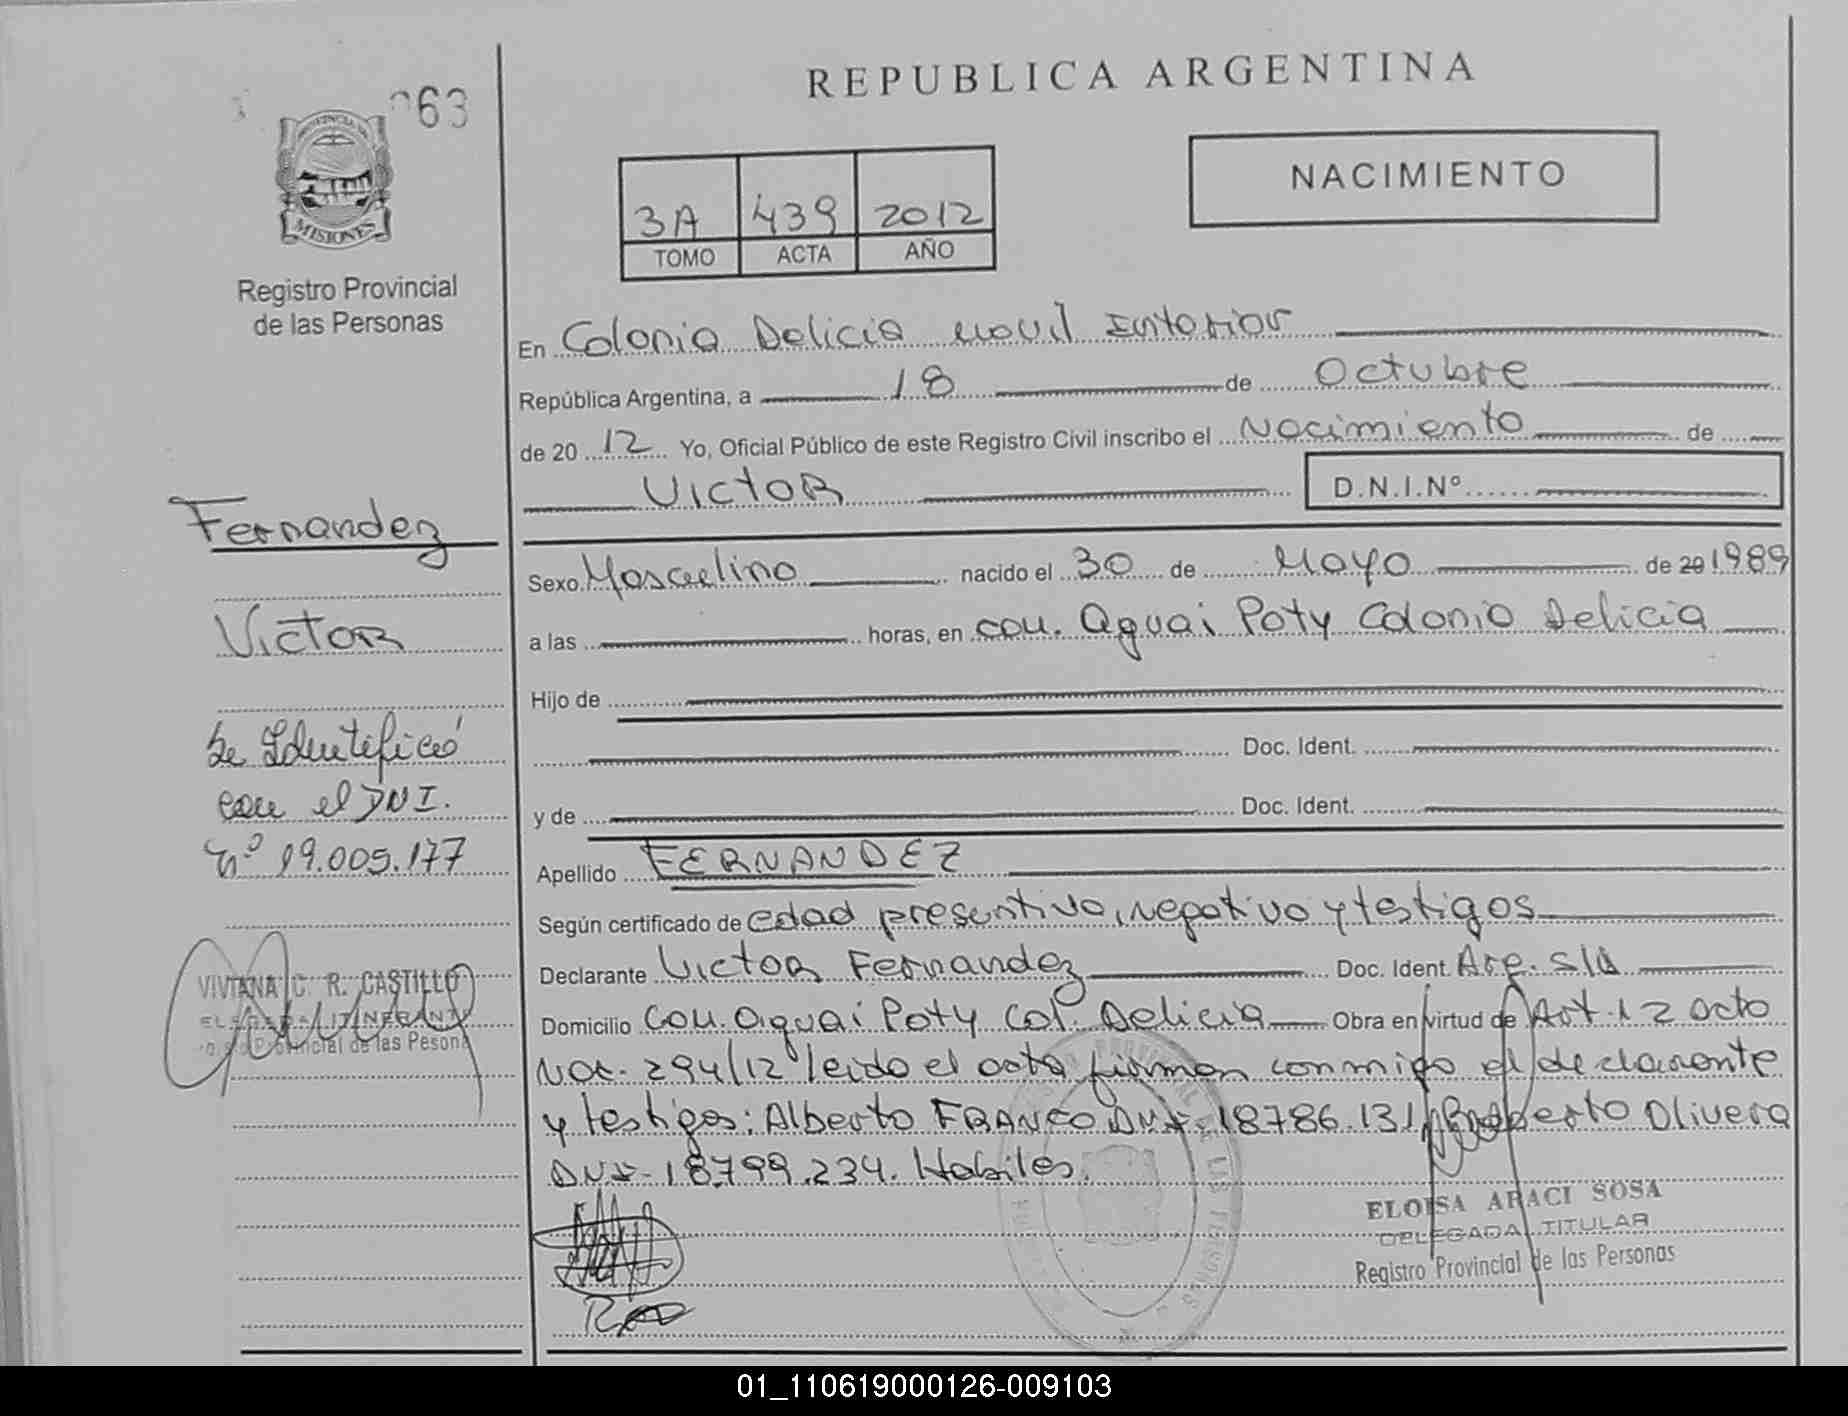 063
MISIONES
Registro Provincial
de las Personas
REPUBLICA ARGENTINA
NACIMIENTO
3A 439 2012
TOMO ACTA AÑO
En Colonia Delicia movil Interior
República Argentina, a 18 de Octubre
de 20 12 Yo, Oficial Público de este Registro Civil inscribo el Nacimiento de
Victor D.N.I.Nº
Sexo Masculino nacido el 30 de Mayo de 20 1989
a las horas, en com. Aguai Poty Colonia Delicia
Hijo de
Doc. Ident.
y de Doc. Ident.
Apellido FERNANDEZ
Según certificado de edad presuntiva, negativo y testigos
Declarante Victor Fernandez Doc. Ident. Arg. S/D
Domicilio com. Aguai Poty Col. Delicia Obra en virtud de Art. 12 acto
Not. 294/12 leido el acta firman conmigo el declarante
y testigos: Alberto FRANCO DNI- 18786.131 Roberto Olivera
DNI- 18.799.234. Habiles.
ELOISA ARACI SOSA
DELEGADA TITULAR
Registro Provincial de las Personas
Fernandez
Victor
Se Identificó
con el DNI.
nº 19.005.177
VIVIANA C. R. CASTILLO
DELEGADA ITINERANTE
Provincial de las Pesona
01_110619000126-009103